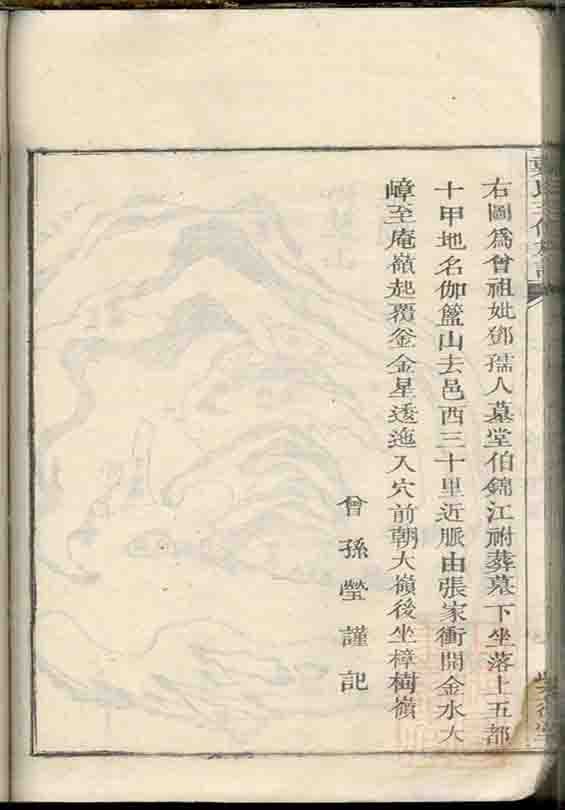 右圖爲曾祖妣鄧孺人墓堂伯錦江祔葬墓下坐落上五都
十甲地名伽籃山去邑西三十里近脈由張家衝開金水大
嶂至庵嶺起覆釜金星逶迤入穴前朝大嶺後坐樟樹嶺
曾孫瑩謹記